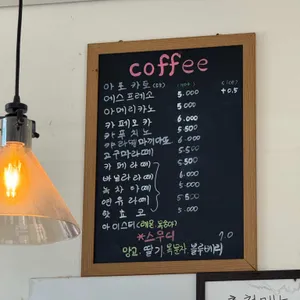 coffee
아포카토 (ice)
에스프레소 5.000
아메리카노 5.000
카페모카 6.000
카푸치노 5.500
캬라멜마끼야또 6.000
고구마라떼 5.500
카페라떼 5.500
바닐라라떼 6.000
녹차라떼 5.000
5.500
핫쵸코 5.000
아이스티 (레몬.복숭아)
*스무디 7.0
망고. 딸기. 복숭아. 블루베리
+0.5